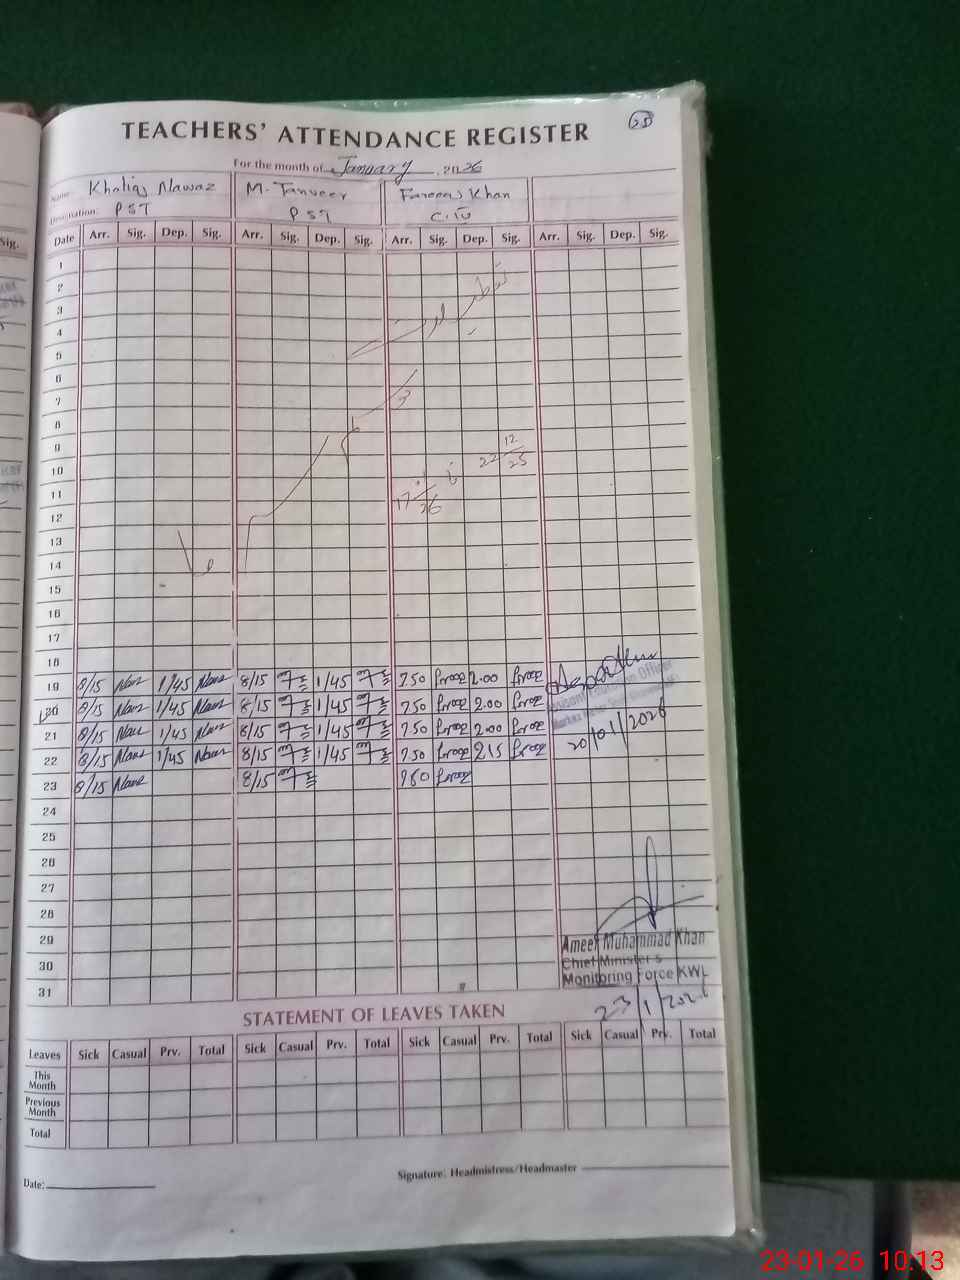 25
TEACHERS' ATTENDANCE REGISTER
For the month of January 2026
Name: Khaliq Nawaz M. Tanveer Khan
Designation: PST PST
Date Arr. Sig. Dep. Sig. Arr. Sig. Dep. Sig. Arr. Sig. Dep. Sig. Arr. Sig. Dep. Sig.
1
2
3
4
5
6
7
8
9
10 22 12/25
11 17 1/26
12
13
14
15
16
17
18
19 8/15 Nawz 1/45 Nawz 8/15 1/45 7 50 2.00
20 8/15 Nawz 1/45 Nawz 8/15 1/45 7 50 2.00
21 8/15 Nawz 1/45 Nawz 8/15 1/45 7 50 2.00 20/01/2026
22 8/15 Nawz 1/45 Nawz 8/15 1/45 7 50 2 15
23 8/15 Nawz 8/15
24
25
26
27
28
29 Ameer Muhammad Khan
30 Chief Minister's
Monitoring Force KWL
31
23/1/2026
STATEMENT OF LEAVES TAKEN
Leaves Sick Casual Prv. Total Sick Casual Prv. Total Sick Casual Prv. Total Sick Casual Prv. Total
This
Month
Previous
Month
Total
Date: Signature: Headmistress/Headmaster
23-01-26 10:13